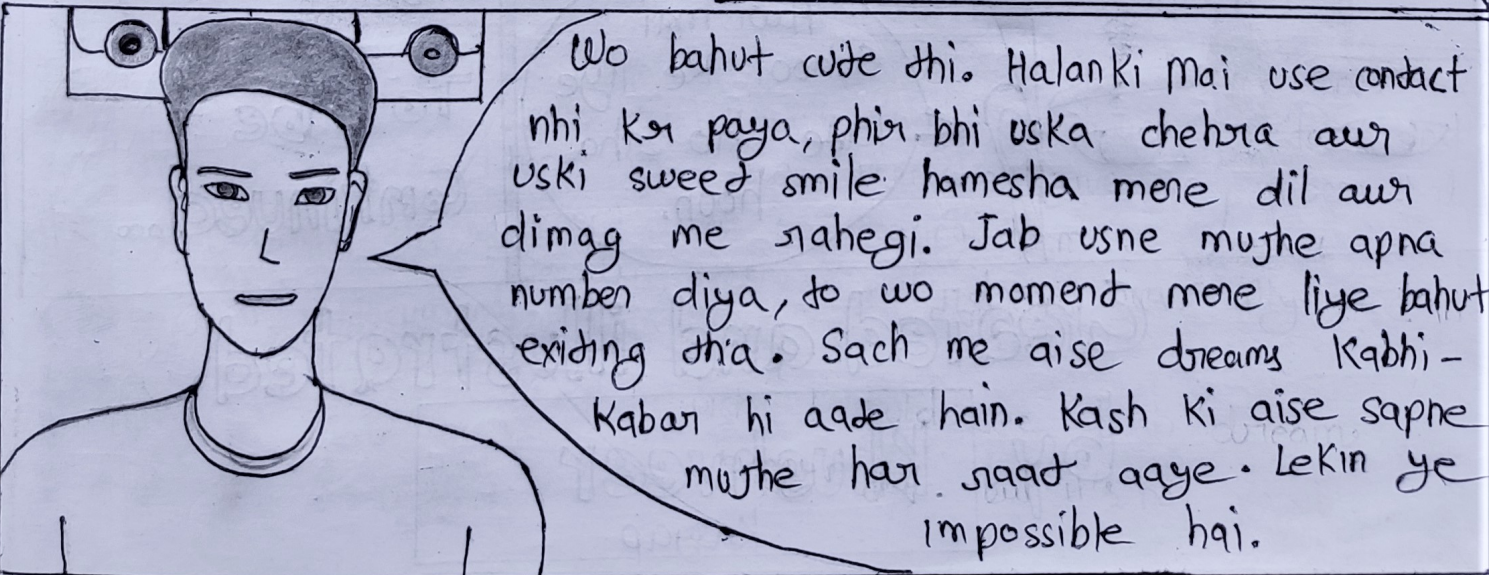 Wo bahut cute thi. Halanki mai use contact
nhi kr paya, phir bhi uska chehra aur
uski sweet smile hamesha mere dil aur
dimag me rahegi. Jab usne mujhe apna
number diya, to wo moment mere liye bahut
exiting tha. Sach me aise dreams kabhi-
kabar hi aate hain. Kash ki aise sapne
mujhe har raat aaye. Lekin ye
impossible hai.